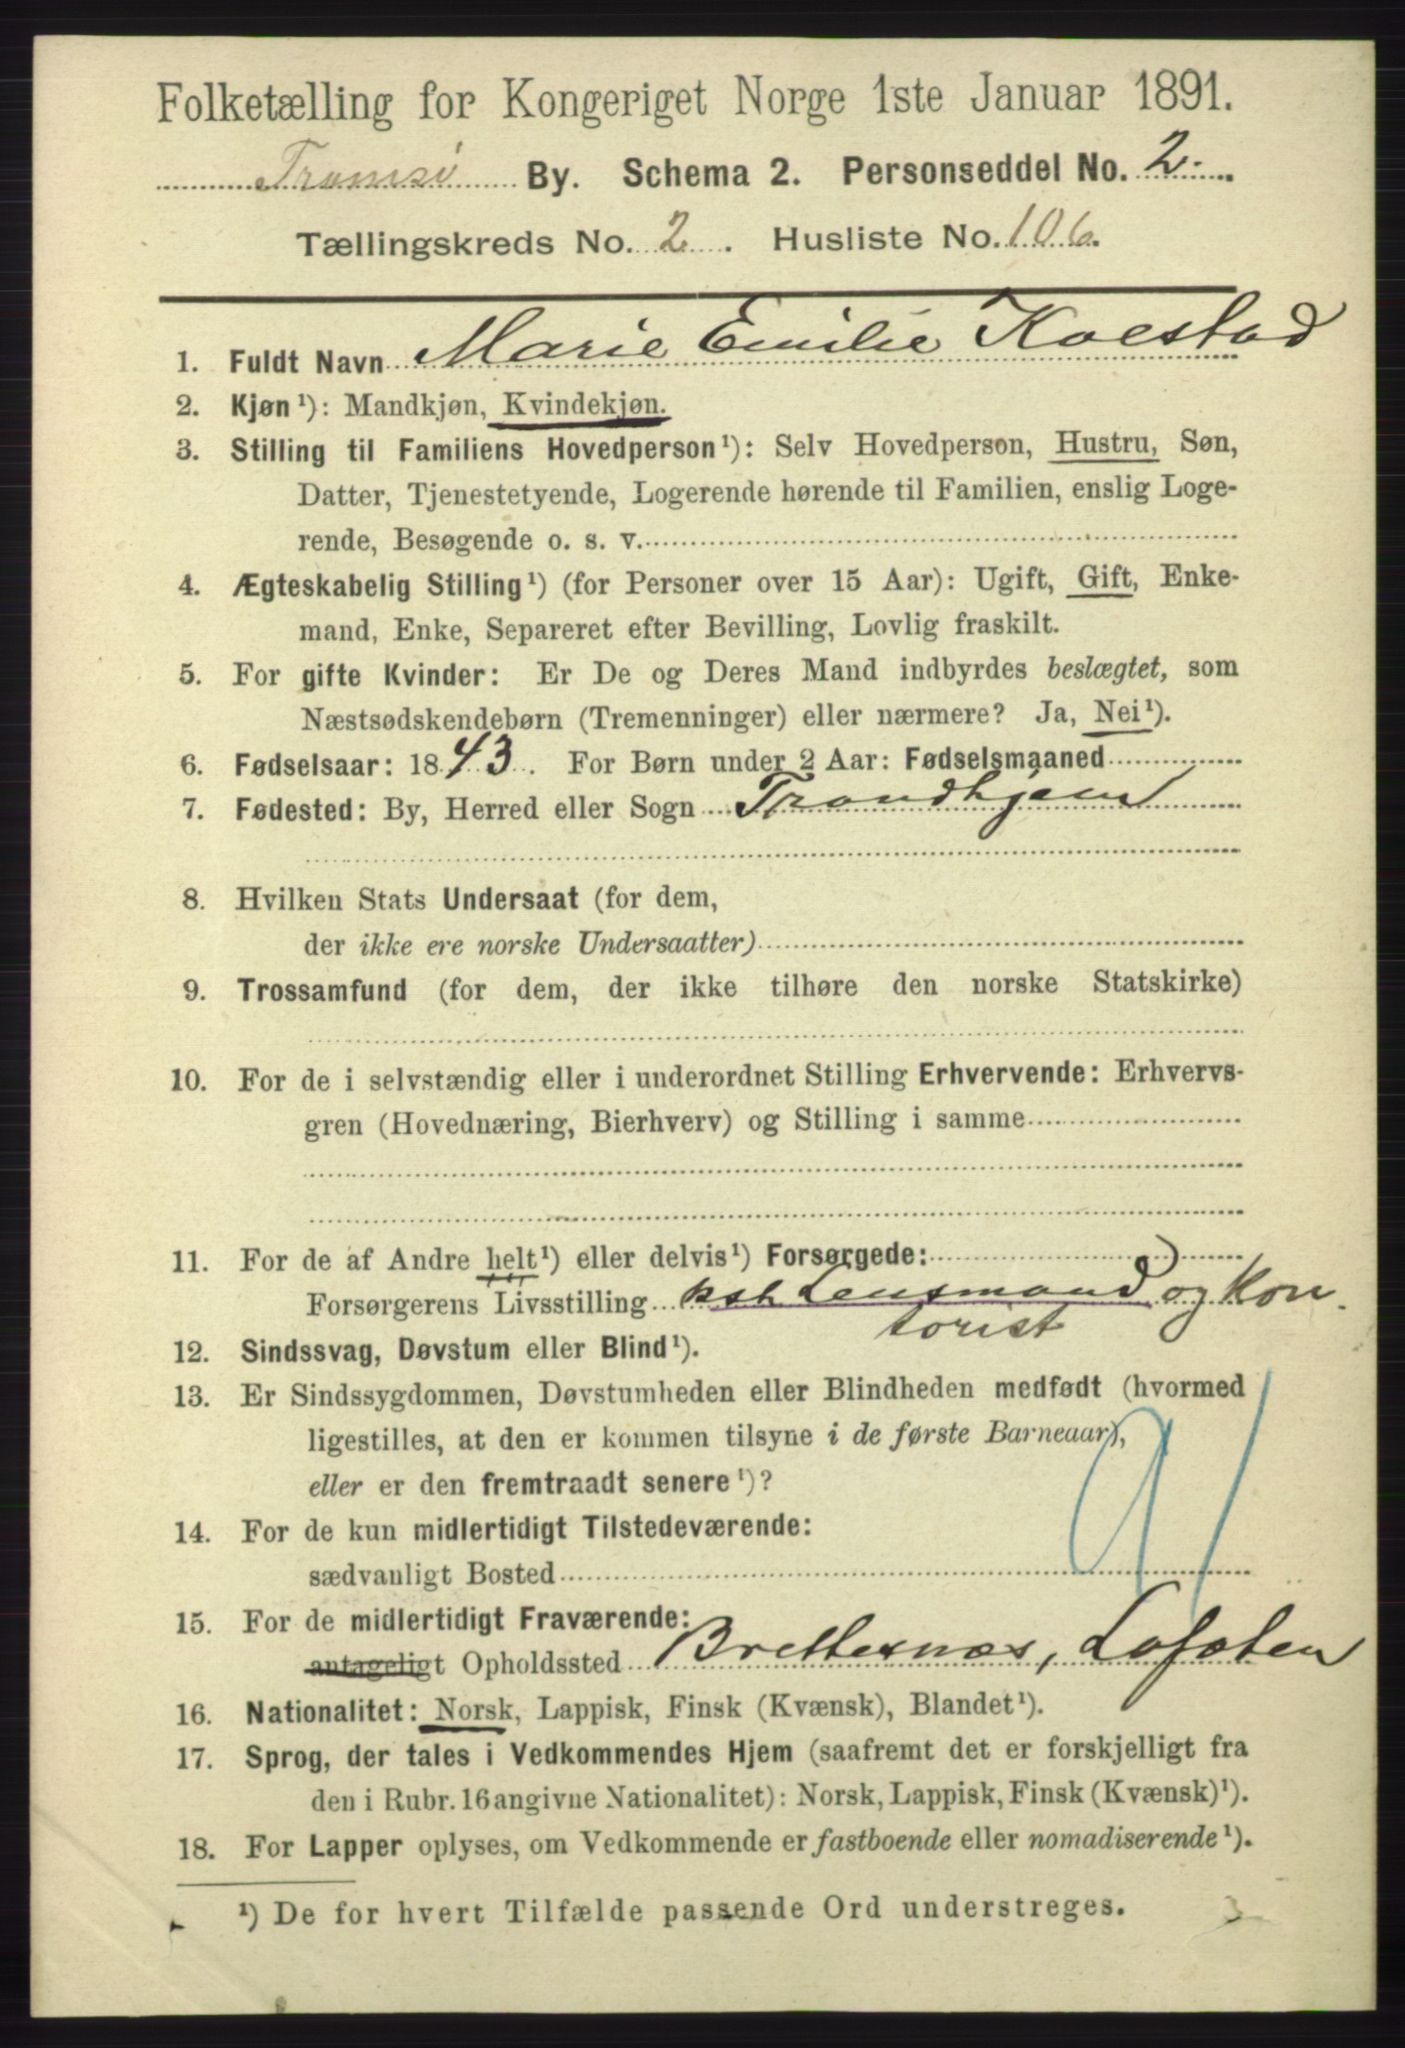 Folketælling for Kongeriget Norge 1ste Januar 1891.
Tromsø By. Schema 2. Personseddel No. 2.
Tællingskreds No. 2. Husliste No. 106.
1. Fuldt Navn Marie Emilie Kolstad
2. Kjøn¹): Mandkjøn, Kvindekjøn.
3. Stilling til Familiens Hovedperson¹): Selv Hovedperson, Hustru, Søn,
Datter, Tjenestetyende, Logerende hørende til Familien, enslig Loge-
rende, Besøgende o. s. v.
4. Ægteskabelig Stilling¹) (for Personer over 15 Aar): Ugift, Gift, Enke-
mand, Enke, Separeret efter Bevilling, Lovlig fraskilt.
5. For gifte Kvinder: Er De og Deres Mand indbyrdes beslægtet, som
Næstsødskendebørn (Tremenninger) eller nærmere? Ja, Nei¹).
6. Fødselsaar: 1843. For Børn under 2 Aar: Fødselsmaaned
7. Fødested: By, Herred eller Sogn Trondhjem
8. Hvilken Stats Undersaat (for dem,
der ikke ere norske Undersaatter)
9. Trossamfund (for dem, der ikke tilhøre den norske Statskirke)
10. For de i selvstændig eller i underordnet Stilling Erhvervende: Erhvervs-
gren (Hovednæring, Bierhverv) og Stilling i samme
11. For de af Andre helt¹) eller delvis¹) Forsørgede:
Forsørgerens Livsstilling kst Lensmand og Kon
torist
12. Sindssvag, Døvstum eller Blind¹).
13. Er Sindssygdommen, Døvstumheden eller Blindheden medfødt (hvormed
ligestilles, at den er kommen tilsyne i de første Barneaar),
eller er den fremtraadt senere¹)?
91
14. For de kun midlertidigt Tilstedeværende:
sædvanligt Bosted
15. For de midlertidigt Fraværende:
antageligt Opholdssted Brettesnæs, Lofoten
16. Nationalitet: Norsk, Lappisk, Finsk (Kvænsk), Blandet¹).
17. Sprog, der tales i Vedkommendes Hjem (saafremt det er forskjelligt fra
den i Rubr. 16 angivne Nationalitet): Norsk, Lappisk, Finsk (Kvænsk)¹).
18. For Lapper oplyses, om Vedkommende er fastboende eller nomadiserende¹).
¹) De for hvert Tilfælde passende Ord understreges.